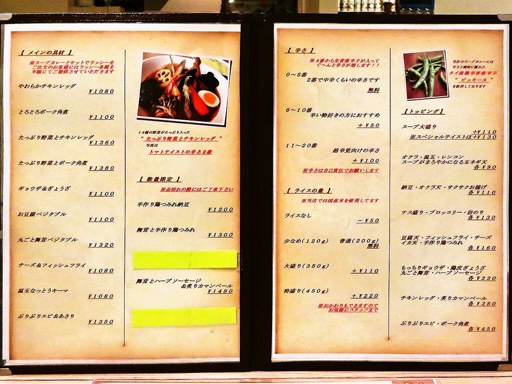 【 メインの具材 】
やわらかチキンレッグ
¥1080
とろとろポーク角煮
¥1100
たっぷり野菜とチキンレッグ
¥1380
たっぷり野菜とポーク角煮
¥1380
ギョウザ&ぎょうざ
¥1100
お豆腐ベジタブル
¥1100
丸ごと舞茸ベジタブル
¥1320
チーズ&フィッシュフライ
¥1080
温玉なっとうキーマ
¥1080
ぷりぷりエビ&あさり
¥1350
14種の野菜がたっぷり入った
"たっぷり野菜とチキンレッグ"
写真は
トマトテイストの辛さ2番
【 数量限定 】
手作り鶏つみれ納豆
¥1200
舞茸と手作り鶏つみれ
¥1300
舞茸とハーブソーセージ
&炙りカマンベール
¥1480
【 辛さ 】
0～5番
2番で中辛くらいの辛さです
無料
6～10番
辛い物好きの方におすすめ
+¥50
11～20番
超辛党向けの辛さ
+¥100
【 ライスの量 】
ライスなし
-¥50
少なめ(120g) 普通(200g)
無料
大盛り(350g)
+¥110
特盛り(450g)
+¥220
【トッピング】
スープ大盛り
+¥110
オクラ・温玉・レンコン
各 ¥80
納豆・オクラ天・サクサクお揚げ
各 ¥110
ナス盛り・ブロッコリー・岩のり
各 ¥130
豆腐天・フィッシュフライ・チーズ
イカ天・手作り鶏つみれ
各 ¥160
もっちりギョウザ・鶏皮ぎょうざ
丸ごと舞茸・ハーブソーセージ
各 ¥220
チキンレッグ・炙りカマンベール
各 ¥380
ぷりぷりエビ・ポーク角煮
各 ¥450